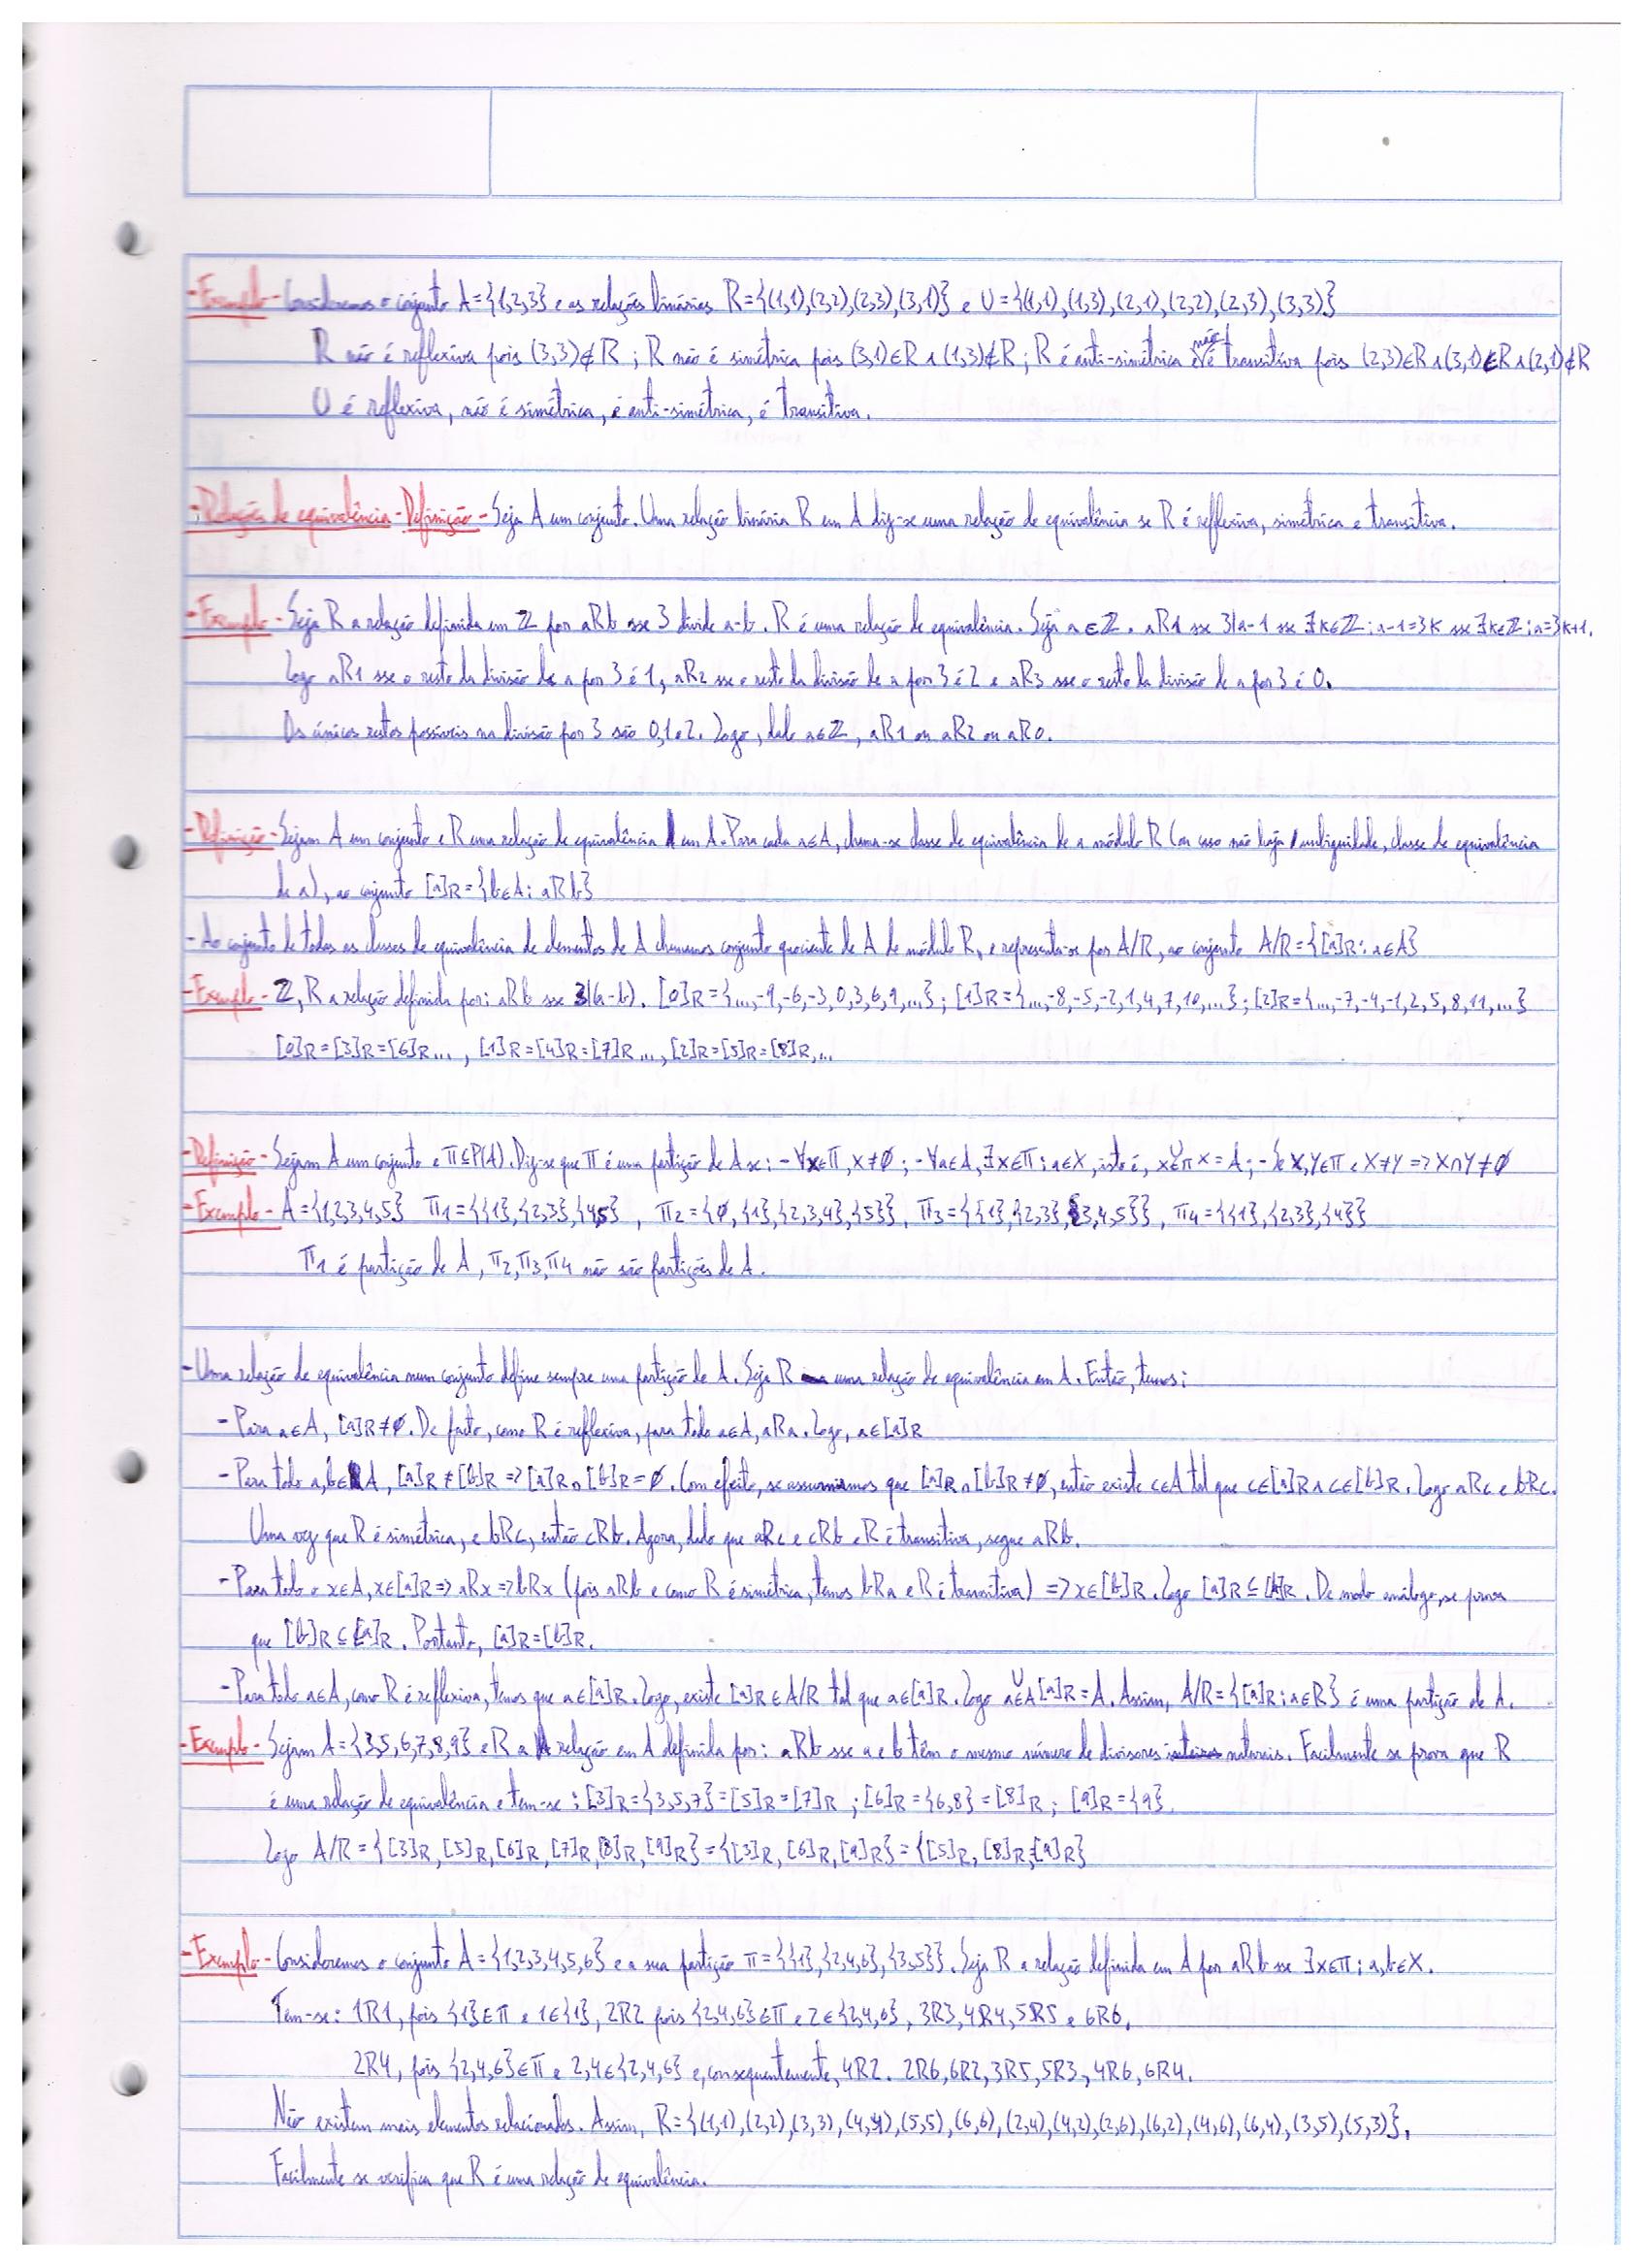 -Exemplo- Consideremos o conjunto A={1,2,3} e as relações binárias R={(1,1),(2,2),(2,3),(3,1)} e U={(1,1),(1,3),(2,1),(2,2),(2,3),(3,3)}
R não é reflexiva pois (3,3)∉R ; R não é simétrica pois (3,1)∈R ∧ (1,3)∉R ; R é anti-simétrica não é transitiva pois (2,3)∈R ∧ (3,1)∈R ∧ (2,1)∉R
U é reflexiva, não é simétrica, é anti-simétrica, é transitiva.
-Relações de equivalência - Definição - Seja A um conjunto. Uma relação binária R em A diz-se uma relação de equivalência se R é reflexiva, simétrica e transitiva.
-Exemplo - Seja R a relação definida em ℤ por aRb sse 3 divide a-b. R é uma relação de equivalência. Seja a∈ℤ. aR1 sse 3|a-1 sse ∃k∈ℤ: a-1=3k sse ∃k∈ℤ: a=3k+1.
Logo aR1 sse o resto da divisão de a por 3 é 1, aR2 sse o resto da divisão de a por 3 é 2 e aR3 sse o resto da divisão de a por 3 é 0.
Os únicos restos possíveis na divisão por 3 são 0,1 e 2. Logo, dado a∈ℤ, aR1 ou aR2 ou aR0.
-Definição - Sejam A um conjunto e R uma relação de equivalência em A. Para cada a∈A, chama-se classe de equivalência de a módulo R (ou caso não haja ambiguidade, classe de equivalência
de a), ao conjunto [a]R={b∈A: aRb}
- Ao conjunto de todas as classes de equivalência de elementos de A chamamos conjunto quociente de A de módulo R, e representa-os por A/R, ao conjunto A/R={[a]R: a∈A}
-Exemplo - ℤ, R a relação definida por: aRb sse 3|(a-b). [0]R={...,-9,-6,-3,0,3,6,9,...}; [1]R={...,-8,-5,-2,1,4,7,10,...}; [2]R={...,-7,-4,-1,2,5,8,11,...}
[0]R=[3]R=[6]R..., [1]R=[4]R=[7]R..., [2]R=[5]R=[8]R,...
-Definição - Sejam A um conjunto e π⊆P(A). Diz-se que π é uma partição de A se: -∀x∈π, x≠∅; -∀a∈A, ∃x∈π: a∈X, isto é, ∪x∈π x=A; -Se X,Y∈π e X≠Y => X∩Y≠∅
-Exemplo - A={1,2,3,4,5} π1={{1},{2,3},{4,5}, π2={∅,{1},{2,3,4},{5}}, π3={{1},{2,3},{3,4,5}}, π4={{1},{2,3},{4}}
π1 é partição de A, π2,π3,π4 não são partições de A.
-Uma relação de equivalência num conjunto define sempre uma partição de A. Seja R uma relação de equivalência em A. Então, temos:
- Para a∈A, [a]R≠∅. De facto, como R é reflexiva, para todo a∈A, aRa. Logo, a∈[a]R
- Para todo a,b∈A, [a]R≠[b]R => [a]R∩[b]R=∅. Com efeito, se assumirmos que [a]R∩[b]R≠∅, então existe c∈A tal que c∈[a]R ∧ c∈[b]R. Logo aRc e bRc.
Uma vez que R é simétrica, e bRc, então cRb. Agora, dado que aRc e cRb e R é transitiva, segue aRb.
- Para todo o x∈A, x∈[a]R => aRx => bRx (pois aRb e como R é simétrica, temos bRa e R é transitiva) => x∈[b]R. Logo [a]R⊆[b]R. De modo análogo, se prova
que [b]R⊆[a]R. Portanto, [a]R=[b]R.
- Para todo a∈A, como R é reflexiva, temos que a∈[a]R. Logo, existe [a]R∈A/R tal que a∈[a]R. Logo ∪a∈A [a]R=A. Assim, A/R={[a]R: a∈R} é uma partição de A.
-Exemplo - Sejam A={3,5,6,7,8,9} e R a relação em A definida por: aRb sse a e b têm o mesmo número de divisores naturais. Facilmente se prova que R
é uma relação de equivalência e tem-se: [3]R={3,5,7}=[5]R=[7]R ; [6]R={6,8}=[8]R ; [9]R={9}.
Logo A/R={[3]R,[5]R,[6]R,[7]R,[8]R,[9]R}={[3]R,[6]R,[9]R}={[5]R,[8]R,[9]R}
-Exemplo - Consideremos o conjunto A={1,2,3,4,5,6} e a sua partição π={{1},{2,4,6},{3,5}}. Seja R a relação definida em A por aRb sse ∃x∈π: a,b∈X.
Tem-se: 1R1, pois {1}∈π e 1∈{1}, 2R2 pois {2,4,6}∈π e 2∈{2,4,6}, 3R3, 4R4, 5R5 e 6R6.
2R4, pois {2,4,6}∈π e 2,4∈{2,4,6} e, consequentemente, 4R2. 2R6, 6R2, 3R5, 5R3, 4R6, 6R4.
Não existem mais elementos relacionados. Assim, R={(1,1),(2,2),(3,3),(4,4),(5,5),(6,6),(2,4),(4,2),(2,6),(6,2),(4,6),(6,4),(3,5),(5,3)}.
Facilmente se verifica que R é uma relação de equivalência.